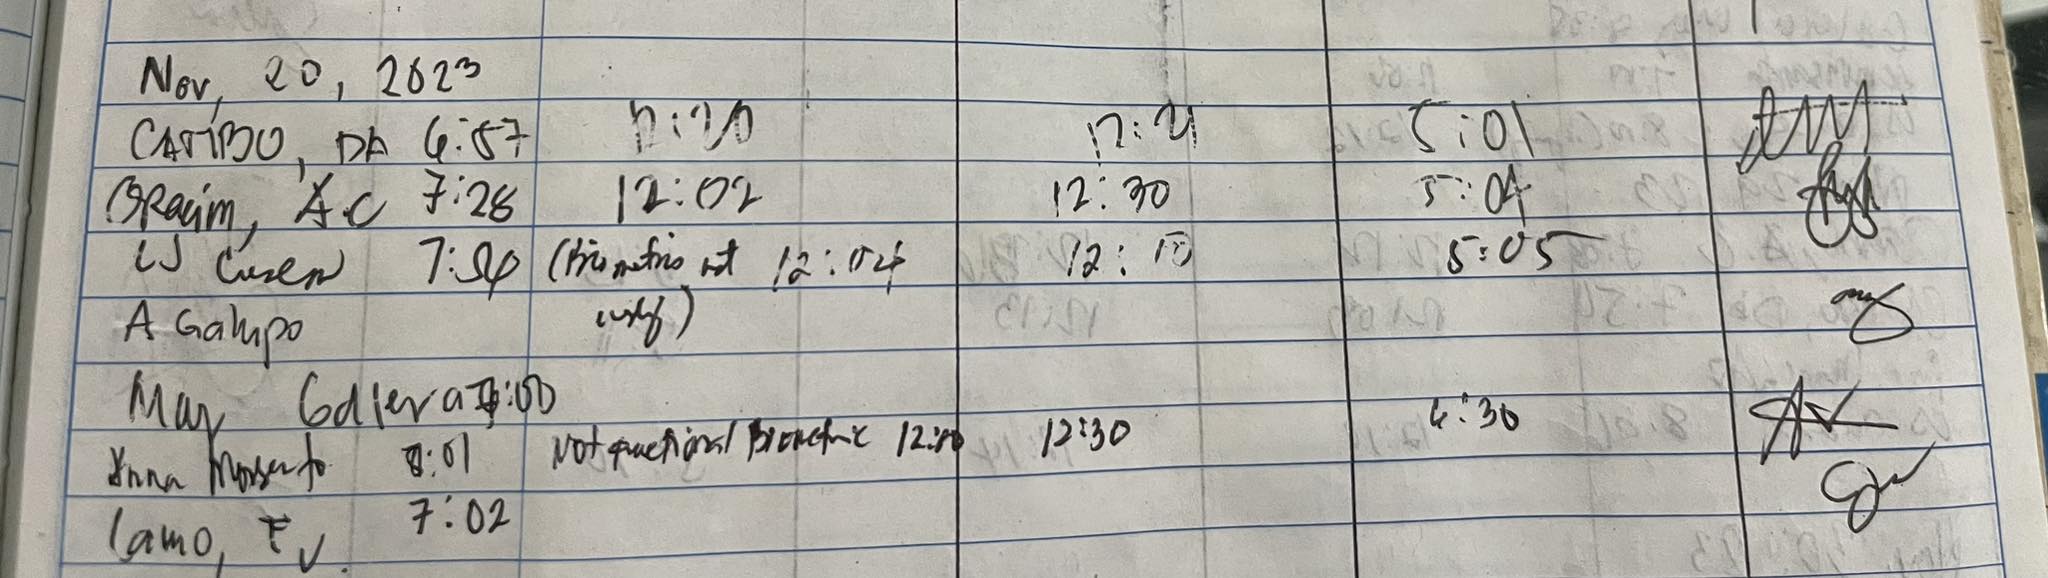 Nov, 20, 2023
CATIBO, DA 6:57 12:20 12:21 5:01
BRacim, A.C 7:28 12:02 12:30 5:04
LJ 7:54 (Biometrics not 12:04 12:15 5:05
A Galupo
May Gdiera 7:00
Anna 8:01 Not functional Biometric 12:00 12:30 4:30
Lamo, F V. 7:02